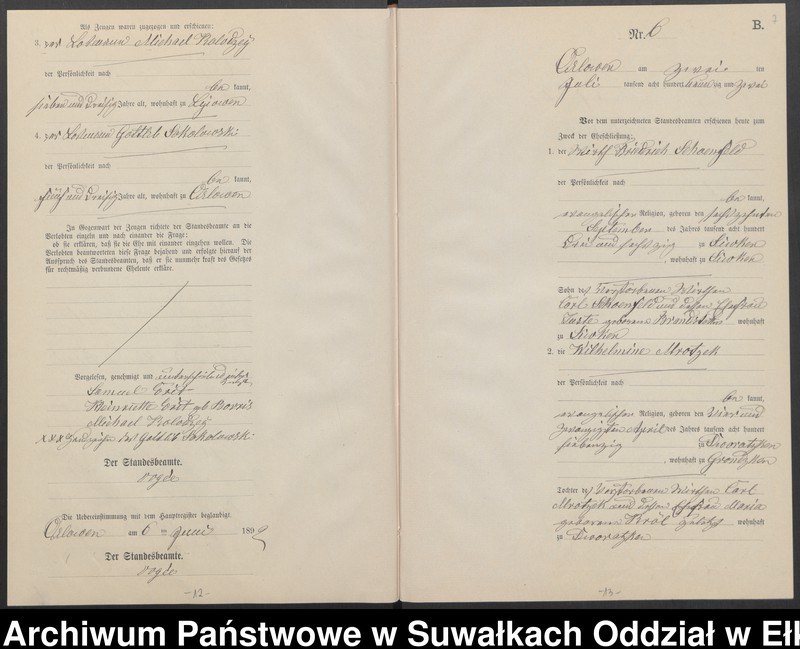 Als Zeugen waren zugezogen und erschienen:
3. der Losmann Michael Kolodzey
der Persönlichkeit nach
be kannt,
sieben und dreißig Jahre alt, wohnhaft zu
4. der Losmann Gottlieb Sokolowski
der Persönlichkeit nach
be kannt,
fünf und dreißig Jahre alt, wohnhaft zu Orlowen
In Gegenwart der Zeugen richtete der Standesbeamte an die
Verlobten einzeln und nach einander die Frage:
ob sie erklären, daß sie die Ehe mit einander eingehen wollen. Die
Verlobten beantworteten diese Frage bejahend und erfolgte hierauf der
Ausspruch des Standesbeamten, daß er sie nunmehr kraft des Gesetzes
für rechtmäßig verbundene Eheleute erkläre.
Vorgelesen, genehmigt und
Samuel
Henriette geb
Michael Kolodzey
xxx Handzeichen des Gottlieb Sokolowski
Der Standesbeamte.
Die Uebereinstimmung mit dem Hauptregister beglaubigt.
Orlowen am 6 ten Juni 189
Der Standesbeamte.
-12-
B.
Nr. 6
Orlowen am zwei ten
Juli tausend acht hundert neun zig und zwei
Vor dem unterzeichneten Standesbeamten erschienen heute zum
Zweck der Eheschließung:
1. der Wirth Friedrich Schoenfeld
der Persönlichkeit nach
be kannt,
evangelischer Religion, geboren den sechszehnten
September des Jahres tausend acht hundert
drei und sechszig zu Siwken
, wohnhaft zu Siwken
Sohn des verstorbenen Wirthen
Carl Schoenfeld und dessen Ehefrau
Juste geborene wohnhaft
zu Siwken
2. die Wilhelmine Mrotzek
der Persönlichkeit nach
be kannt,
evangelischer Religion, geboren den vier und
zwanzigsten April des Jahres tausend acht hundert
siebenzig zu Dworatzken
, wohnhaft zu Grondzken
Tochter des verstorbenen Wirthen Carl
Mrotzek und dessen Ehefrau Maria
geborene Król wohnhaft
zu Dworatzken
-13-
Archiwum Państwowe w Suwałkach Oddział w Eł